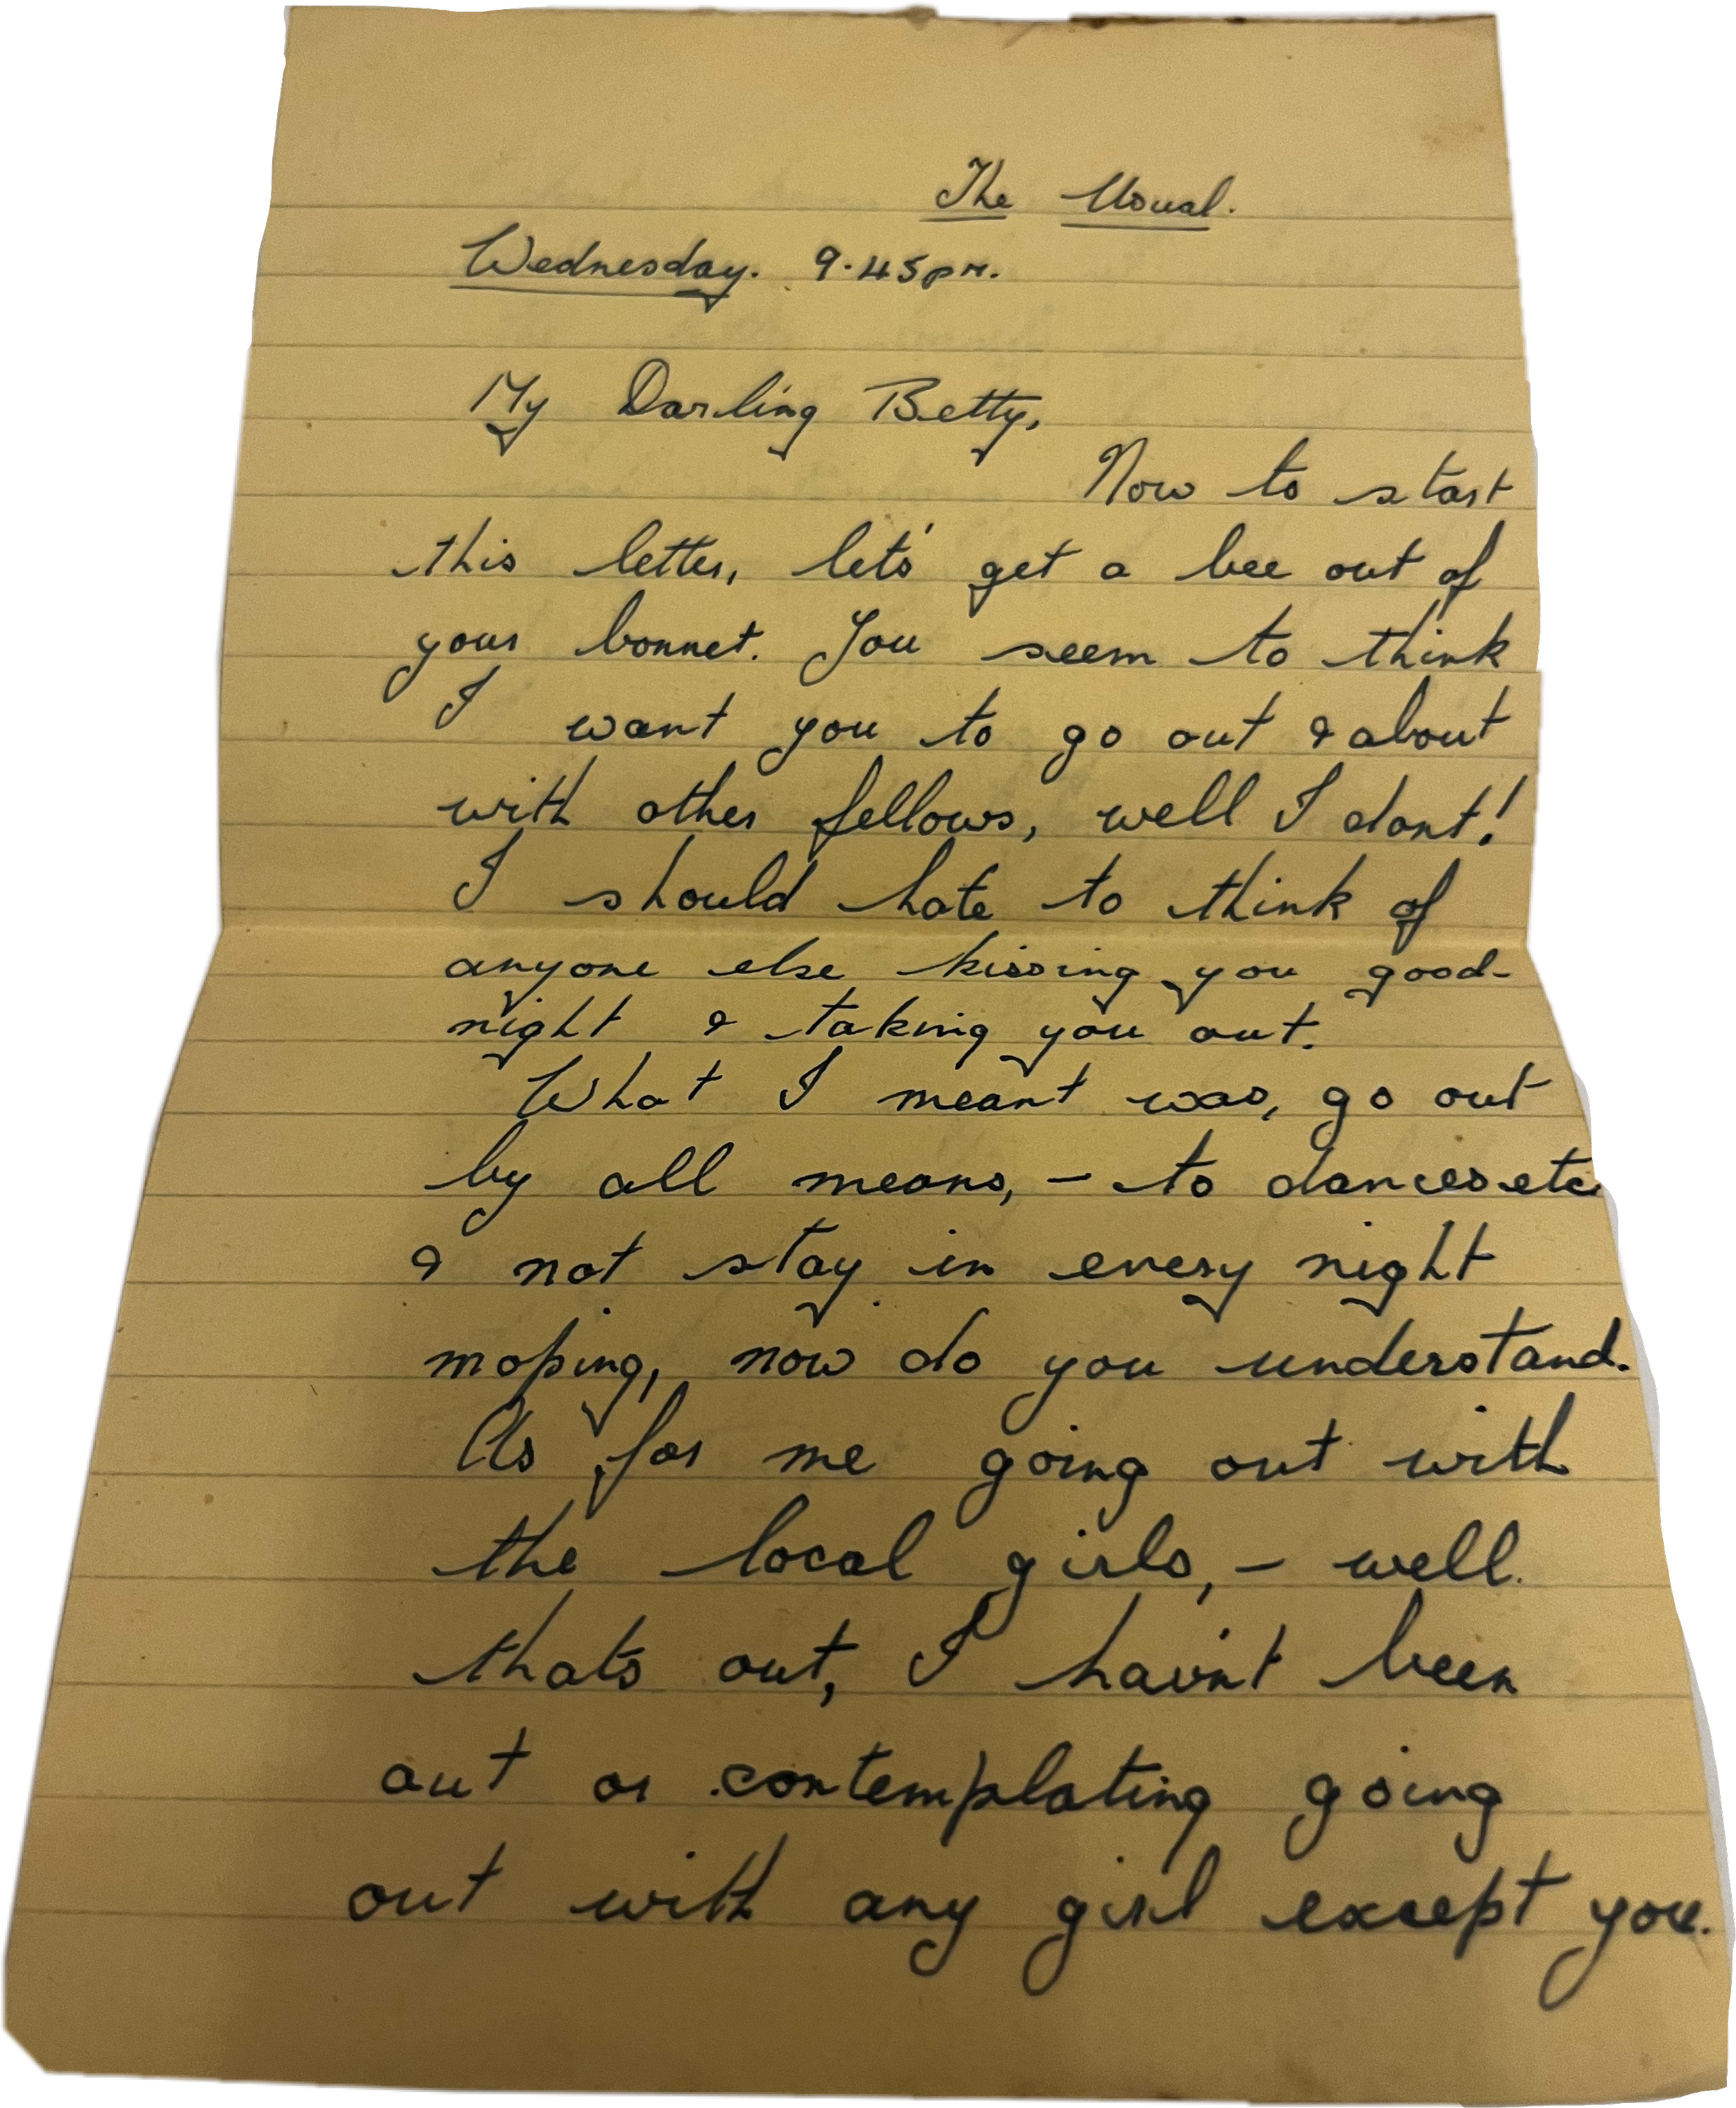 The Usual.
Wednesday. 9.45pm.
My Darling Betty,
Now to start
this letter, let's get a bee out of
your bonnet. You seem to think
I want you to go out & about
with other fellows, well I dont!
I should hate to think of
anyone else kissing you good-
night & taking you out.
What I meant was, go out
by all means, - to dances etc
& not stay in every night
moping, now do you understand.
As for me going out with
the local girls, - well
thats out, I hav'nt been
out or contemplating going
out with any girl except you.